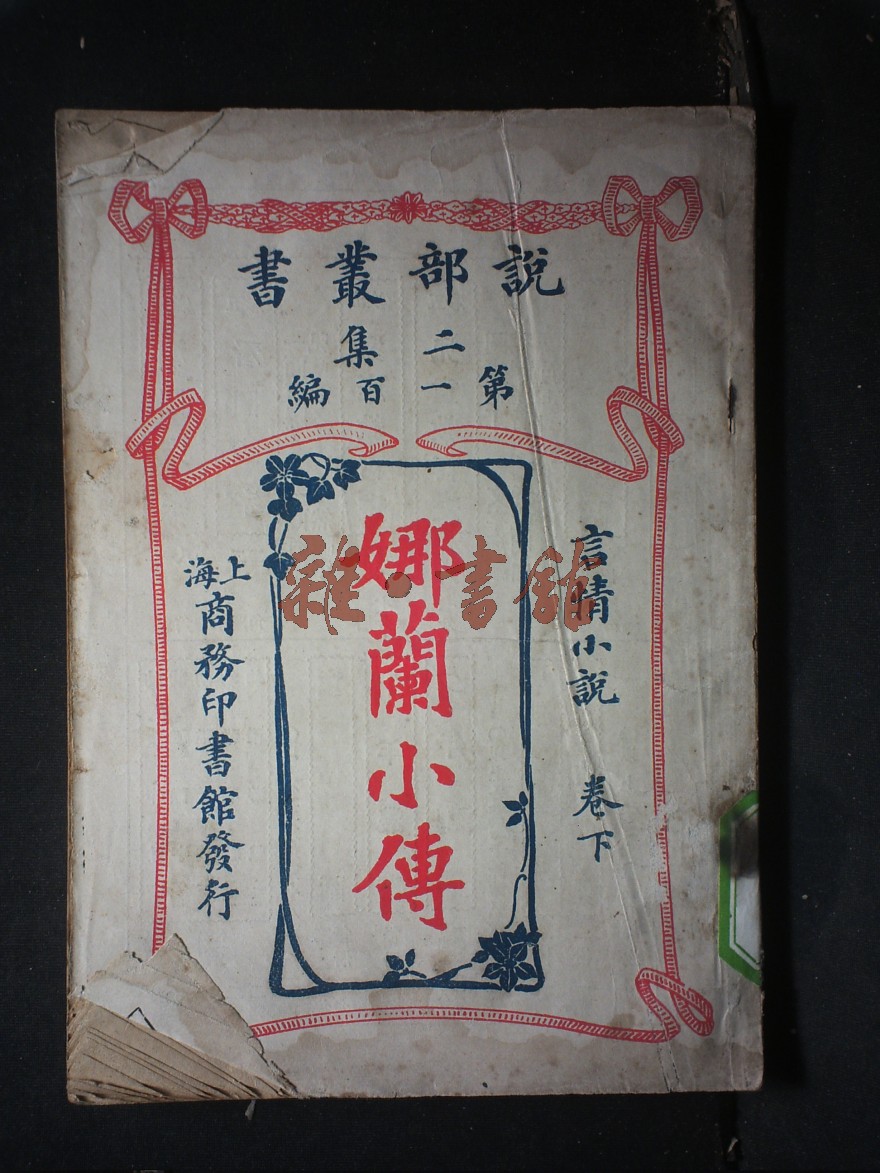 說部叢書
二集
第一百編
言情小說 卷下
娜蘭小傳
上海商務印書館發行
雜·書館